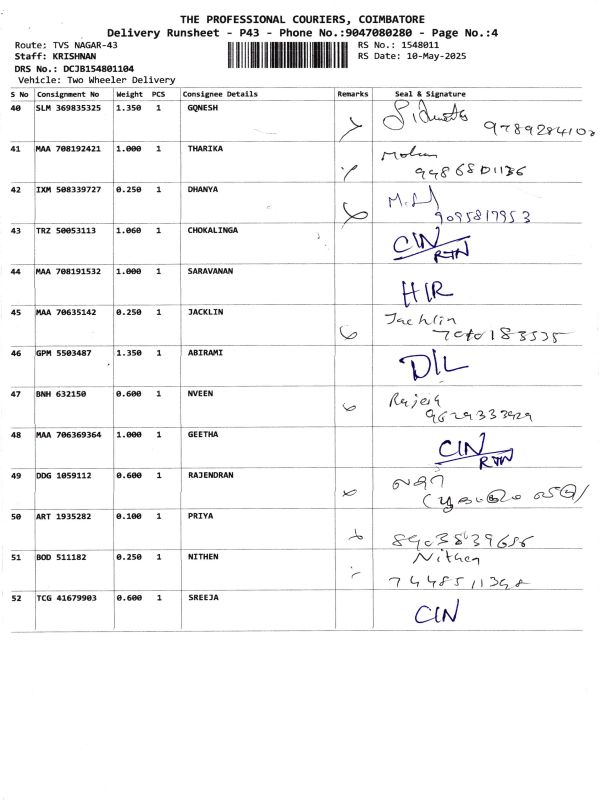 THE PROFESSIONAL COURIERS, COIMBATORE
Delivery Runsheet - P43 - Phone No.:9047080280 - Page No.:4
Route: TVS NAGAR-43 RS No.: 1548011
Staff: KRISHNAN RS Date: 10-May-2025
DRS No.: DCJB154801104
Vehicle: Two Wheeler Delivery
S No Consignment No Weight PCS Consignee Details Remarks Seal & Signature
40 SLM 369835325 1.350 1 GQNESH
9789284102
41 MAA 708192421 1.000 1 THARIKA Mohan
9486801136
42 IXM 508339727 0.250 1 DHANYA
9095817953
43 TRZ 50053113 1.060 1 CHOKALINGA CIN
RTN
44 MAA 708191532 1.000 1 SARAVANAN
HIR
45 MAA 70635142 0.250 1 JACKLIN Jacklin
46 GPM 5503487 1.350 1 ABIRAMI
DIL
47 BNH 632150 0.600 1 NVEEN Rajesh
9629333929
48 MAA 706369364 1.000 1 GEETHA CIN
RTN
49 DDG 1059112 0.600 1 RAJENDRAN
50 ART 1935282 0.100 1 PRIYA
8903839656
51 BOD 511182 0.250 1 NITHEN Nithen
7448511398
52 TCG 41679903 0.600 1 SREEJA CIN